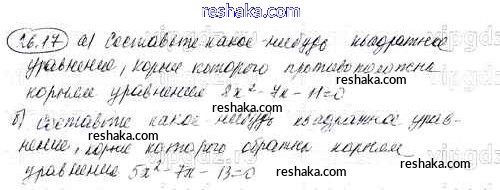 reshak.ru
26.17 а) Составьте какое-нибудь квадратное
уравнение, корни которого противоположны
корням уравнения 8x² - 7x - 11 = 0
б) составьте какое-нибудь квадратное урав-
нение, корни которого обратны корням
уравнение 5x² - 7x - 13 = 0
reshak.ru